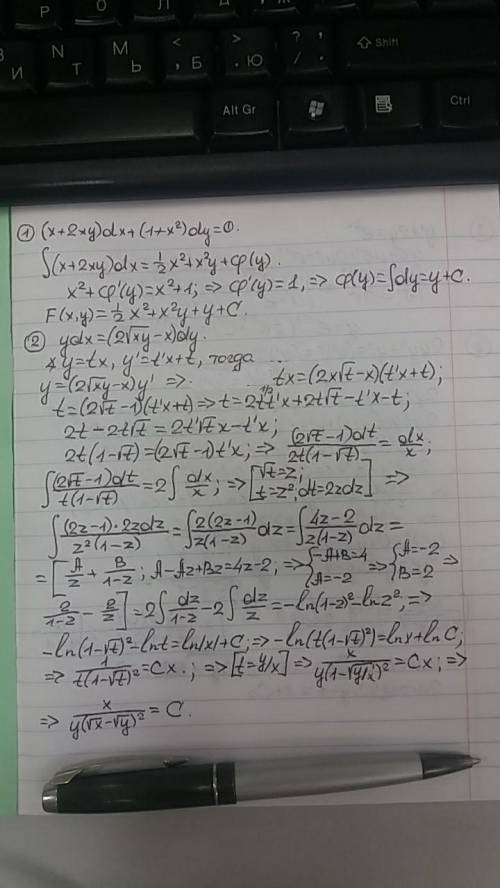 Р О Л Д
И N Т М Ь < , Б > . Ю ? / ! Shift
Alt Gr Ctrl
① (x+2xy)dx+(1+x²)dy=0.
∫(x+2xy)dx=½x²+x²y+φ(y).
x²+φ'(y)=x²+1; ⇒ φ'(y)=1, ⇒ φ(y)=∫dy=y+C.
F(x,y)=½x²+x²y+y+C.
② ydx=(2√xy-x)dy.
y=tx, y'=t'x+t, тогда ...
y=(2√xy-x)y' ⇒ tx=(2x√t-x)(t'x+t);
t=(2√t-1)(t'x+t) ⇒ t=2t^{1/2}t'x+2t√t-t'x-t;
2t-2t√t=2t'√t x-t'x;
2t(1-√t)=(2√t-1)t'x; ⇒ (2√t-1)dt/2t(1-√t) = dx/x;
∫(2√t-1)dt/t(1-√t) = 2∫dx/x; ⇒ [√t=z; t=z²; dt=2zdz] ⇒
∫(2z-1)·2zdz/z²(1-z) = ∫2(2z-1)/z(1-z) dz = ∫4z-2/z(1-z) dz =
= [A/z + B/1-z; A-Az+Bz=4z-2, ⇒ {-A+B=4 A=-2 ⇒ {A=-2 B=2 ⇒
2/1-z - 2/z] = 2∫dz/1-z - 2∫dz/z = -ln(1-z)²-lnz², ⇒
-ln(1-√t)²-lnt=ln|x|+C; ⇒ -ln(t(1-√t)²)=lnx+lnC;
⇒ 1/t(1-√t)² = Cx.; ⇒ [t=y/x] ⇒ x/y(1-√y/x)² = Cx; ⇒
⇒ x/y(√x-√y)² = C.